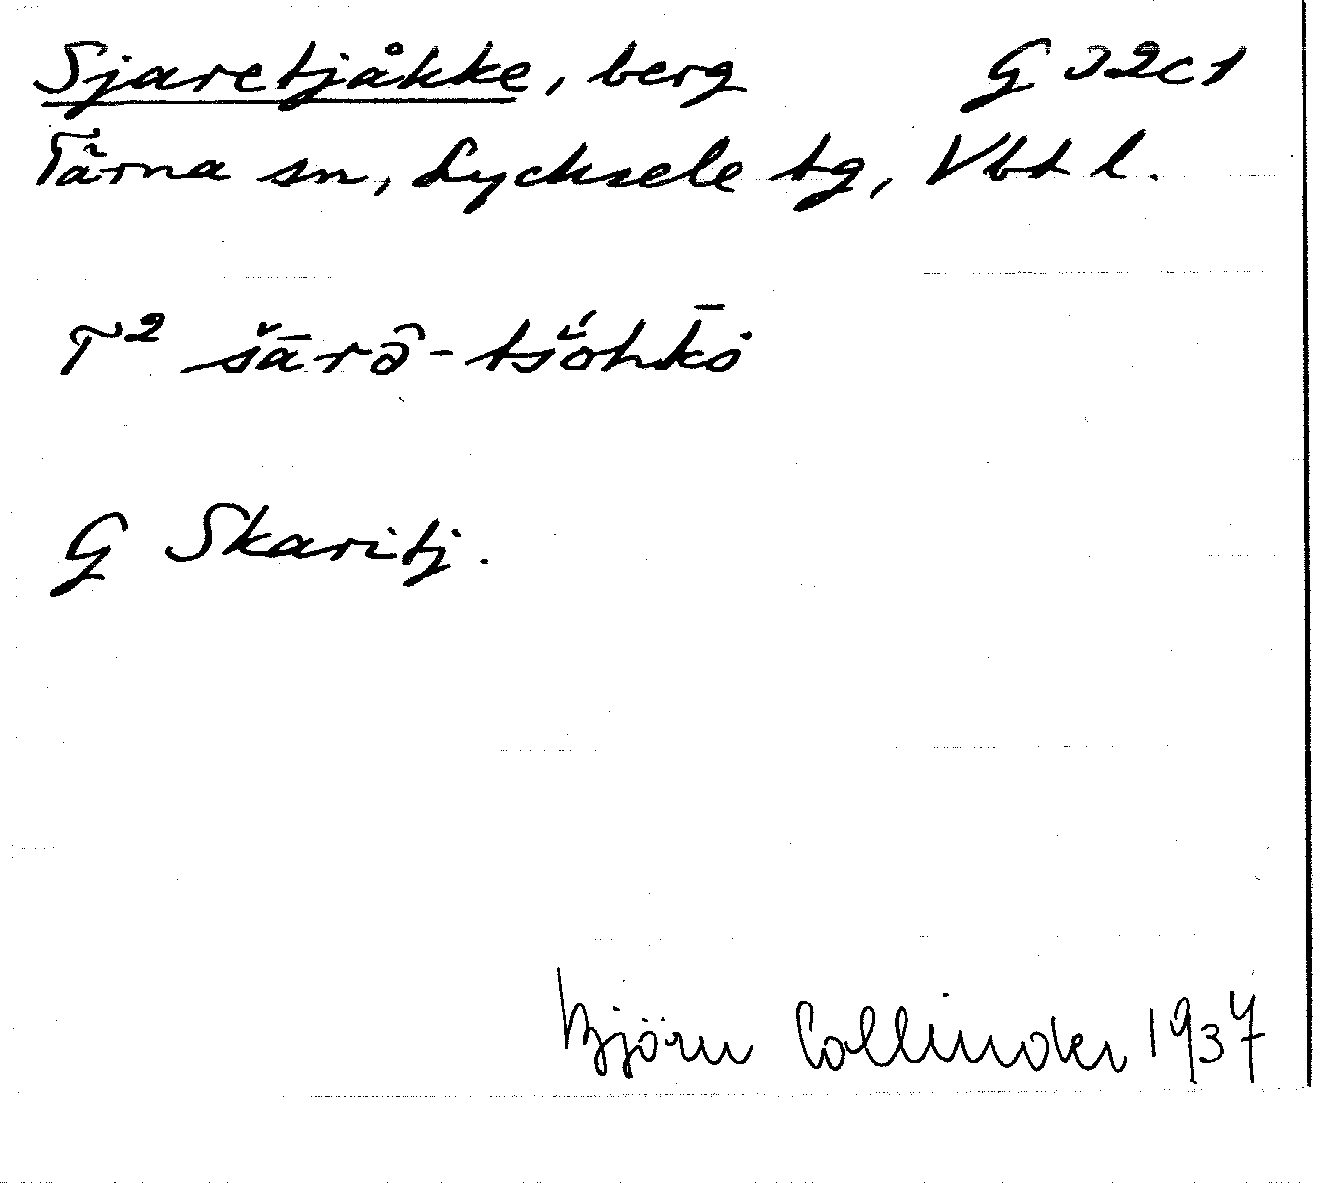 Sjaretjåkke, berg G 32c1
Tärna sn, Lycksele tg, Vbt l.
T² šārə̑̄-tšŏ́hk̄ȯ
G Skaritj.
Björn Collinder 1937